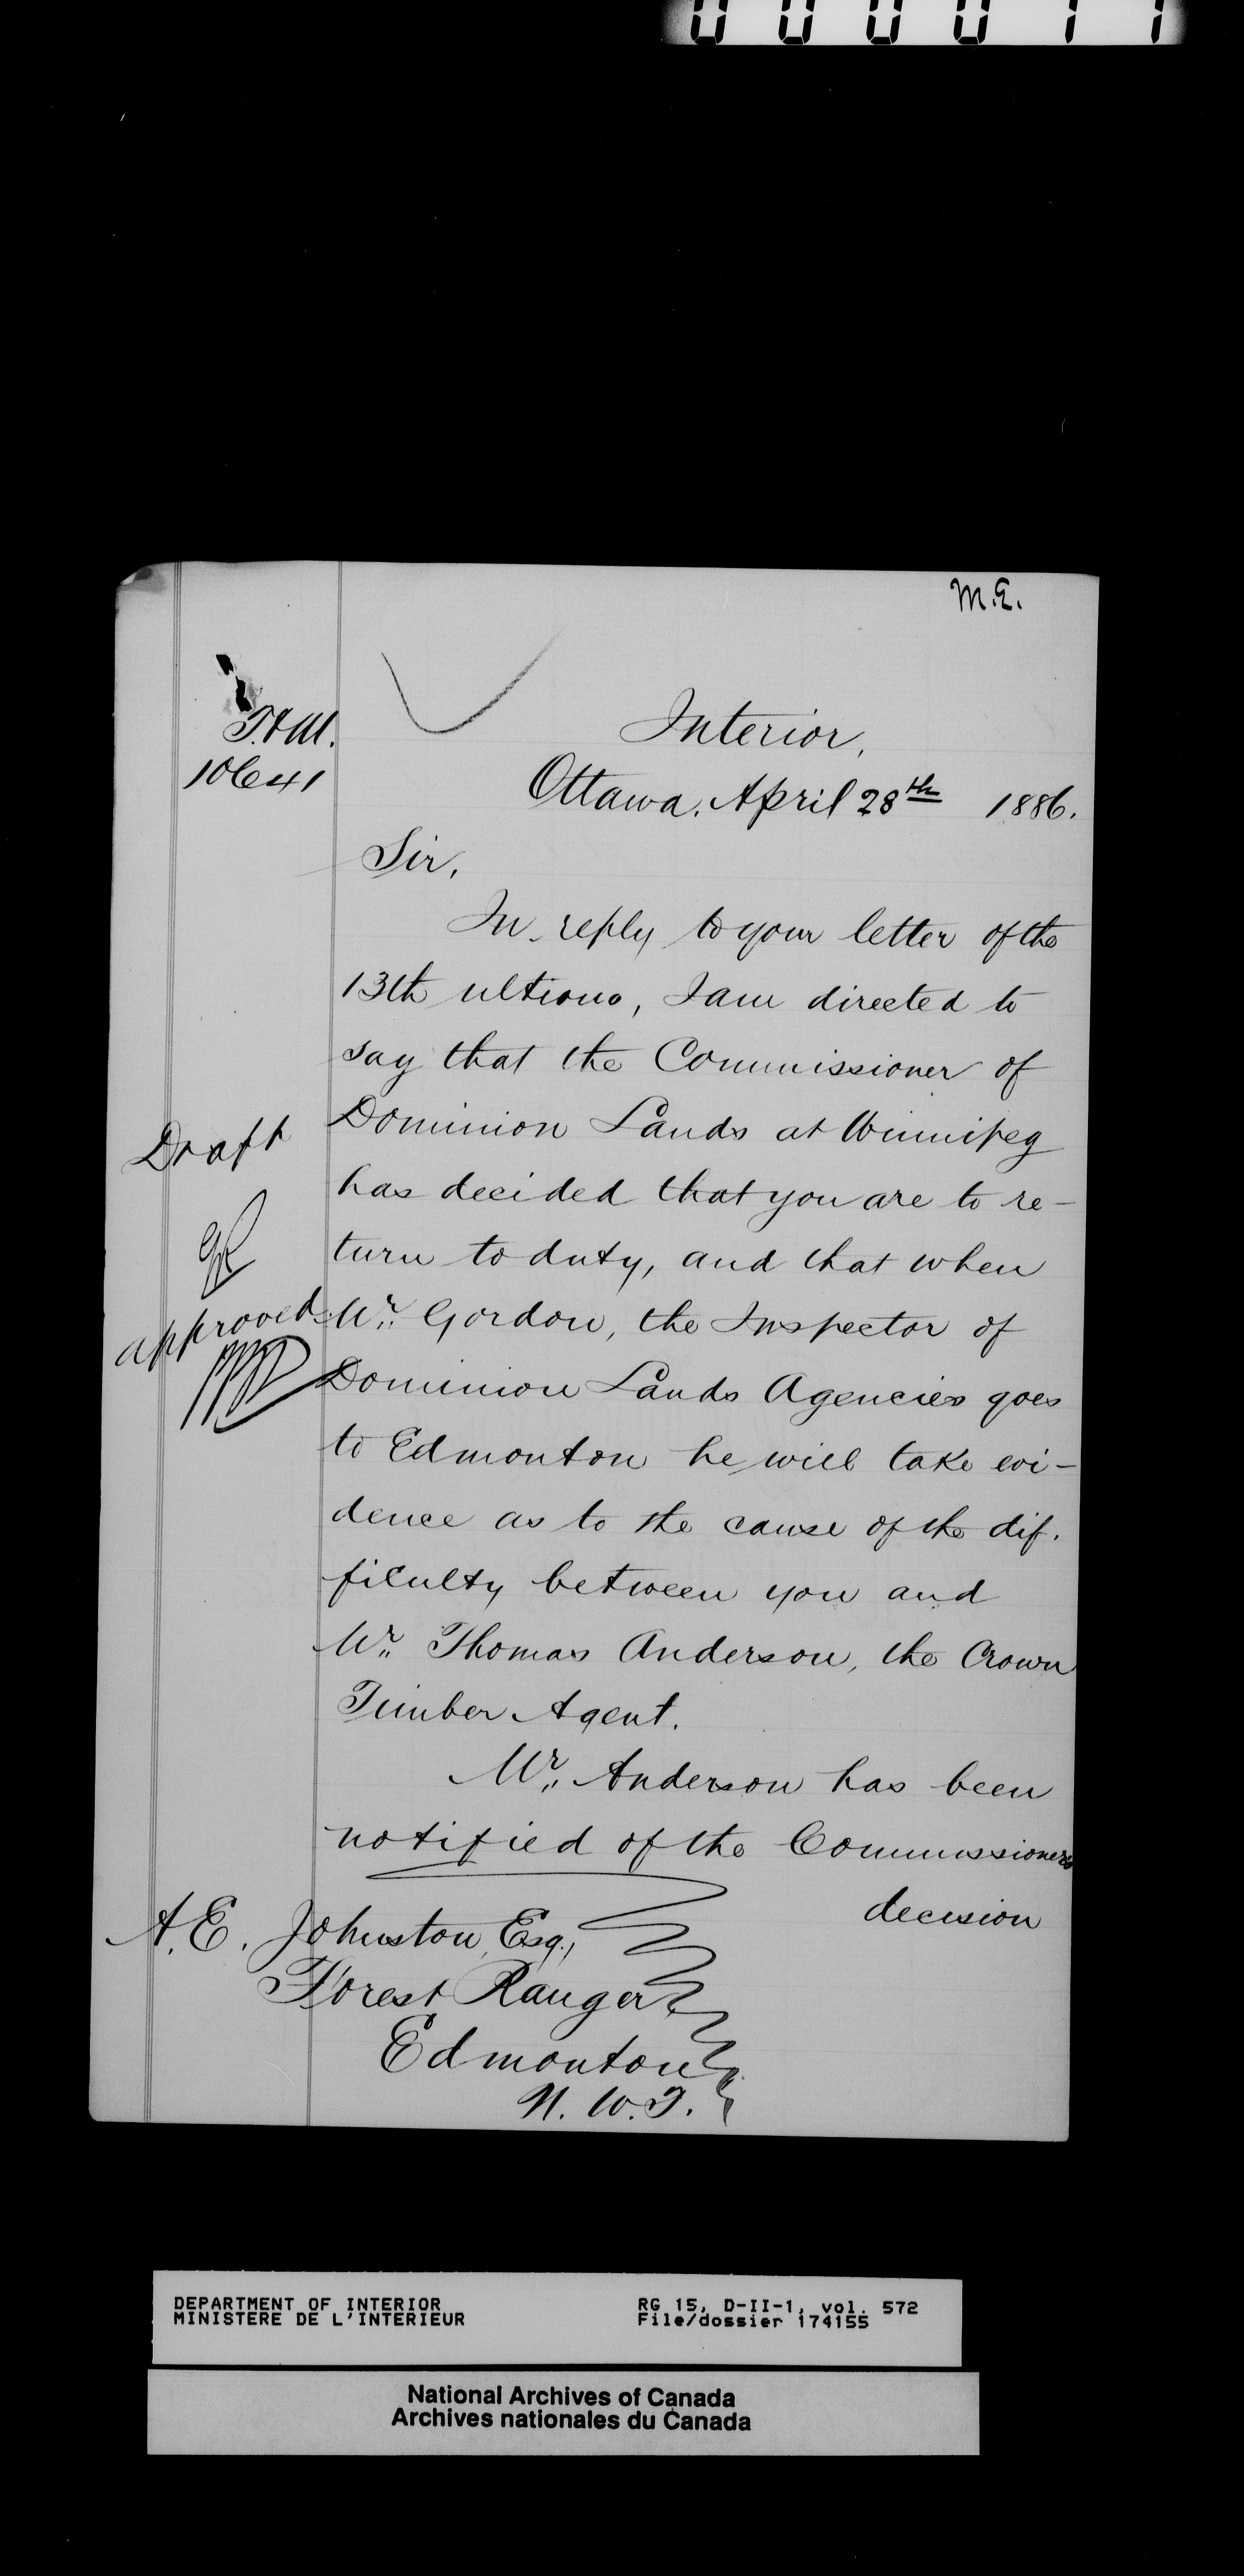 000011
M.E.
T.&M.
10641
Interior,
Ottawa, April 28th 1886.
Sir,
In reply to your letter of the
13th ultimo, I am directed to
say that the Commissioner of
Dominion Lands at Winnipeg
has decided that you are to re-
turn to duty, and that when
Mr. Gordon, the Inspector of
Dominion Lands Agencies goes
to Edmonton he will take evi-
dence as to the cause of the dif-
ficulty between you and
Mr. Thomas Anderson, the Crown
Timber Agent.
Mr. Anderson has been
notified of the Commissioners
decision
Draft
approved
A.E. Johnston, Esq.,
Forest Ranger
Edmonton
N.W.T.
DEPARTMENT OF INTERIOR
MINISTERE DE L'INTERIEUR
RG 15, D-II-1, vol. 572
File/dossier 174155
National Archives of Canada
Archives nationales du Canada